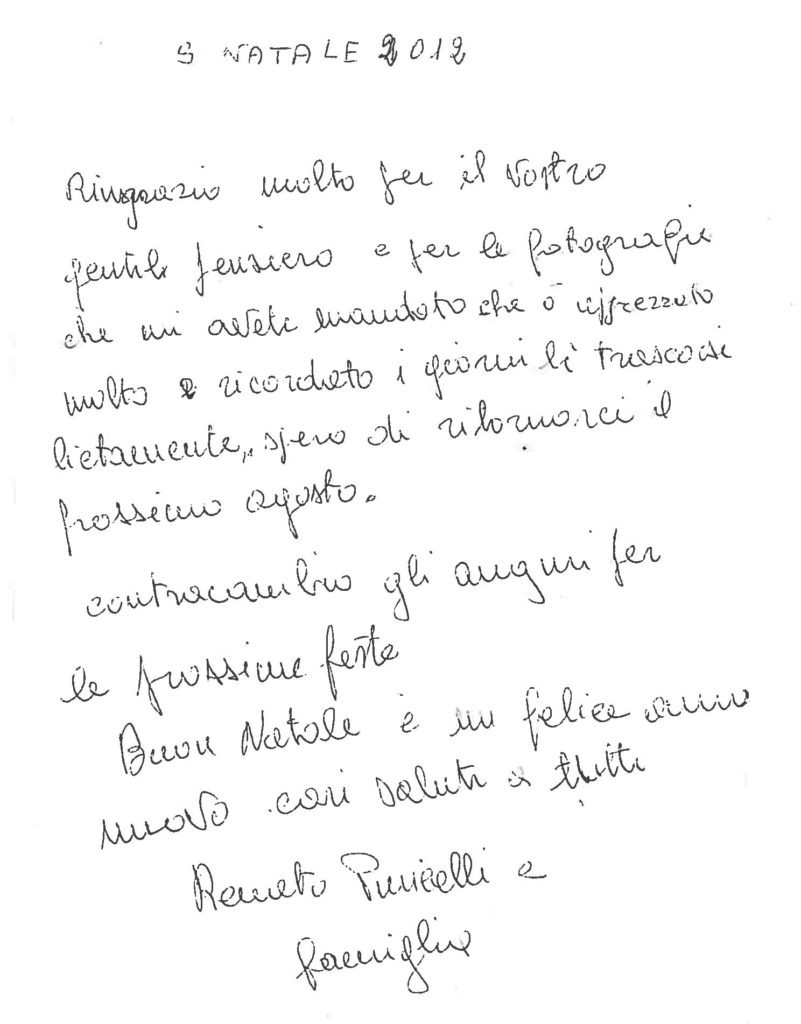 S NATALE 2012
Ringrazio molto per il vostro
gentile pensiero e per le fotografie
che mi avete mandato che ò apprezzato
molto e ricordato i giorni lì trascorsi
lietamente, spero di ritornarci il
prossimo agosto.
contracambio gli auguri per
le prossime feste
Buon Natale è un felice anno
nuovo cari saluti a tutti
Renato Puricelli e
famiglia